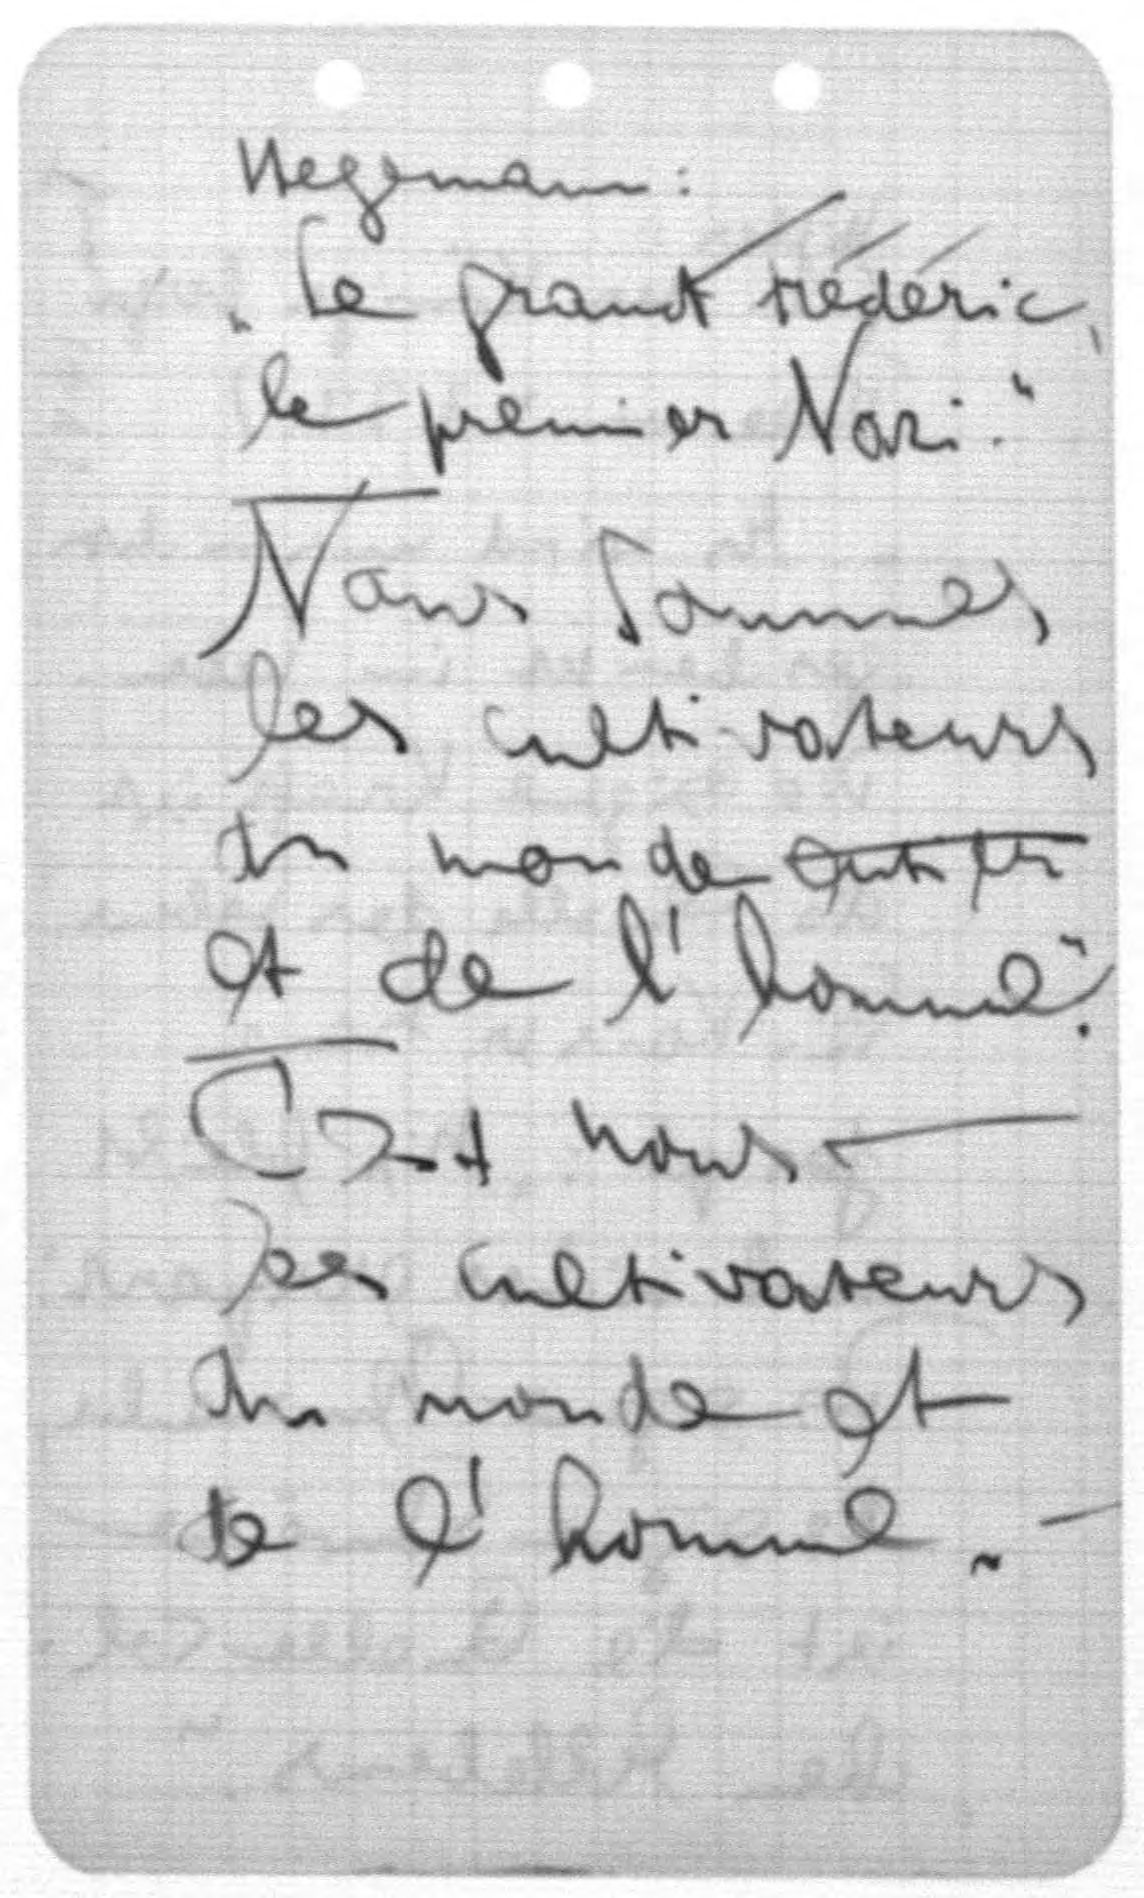 Hegemann:
„Le grand Frédéric,
le premier Nazi."
Nous sommes
les cultivateurs
du monde
et de l'homme".
C'est nous –
les cultivateurs
du monde et
de l'homme. –